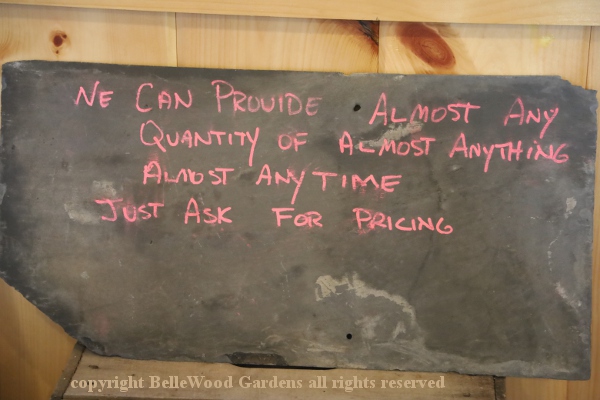 WE CAN PROVIDE ALMOST ANY
QUANTITY OF ALMOST ANYTHING
ALMOST ANYTIME
JUST ASK FOR PRICING
copyright BelleWood Gardens all rights reserved